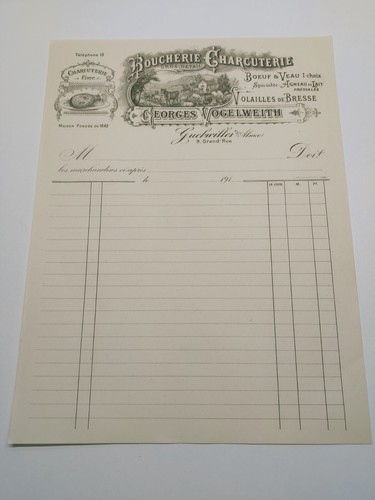 Téléphone 18
BOUCHERIE-CHARCUTERIE
GROS-DÉTAIL
CHARCUTERIE
Fine
BOEUF & VEAU 1er choix
Spécialité: AGNEAU DE LAIT
PRÉ-SALÉS
VOLAILLES DE BRESSE
MAISON FONDÉE EN 1893
GEORGES VOGELWEITH
Guebwiller (Alsace)
9, Grand'Rue
M
Doit
les marchandises ci-après
le 19